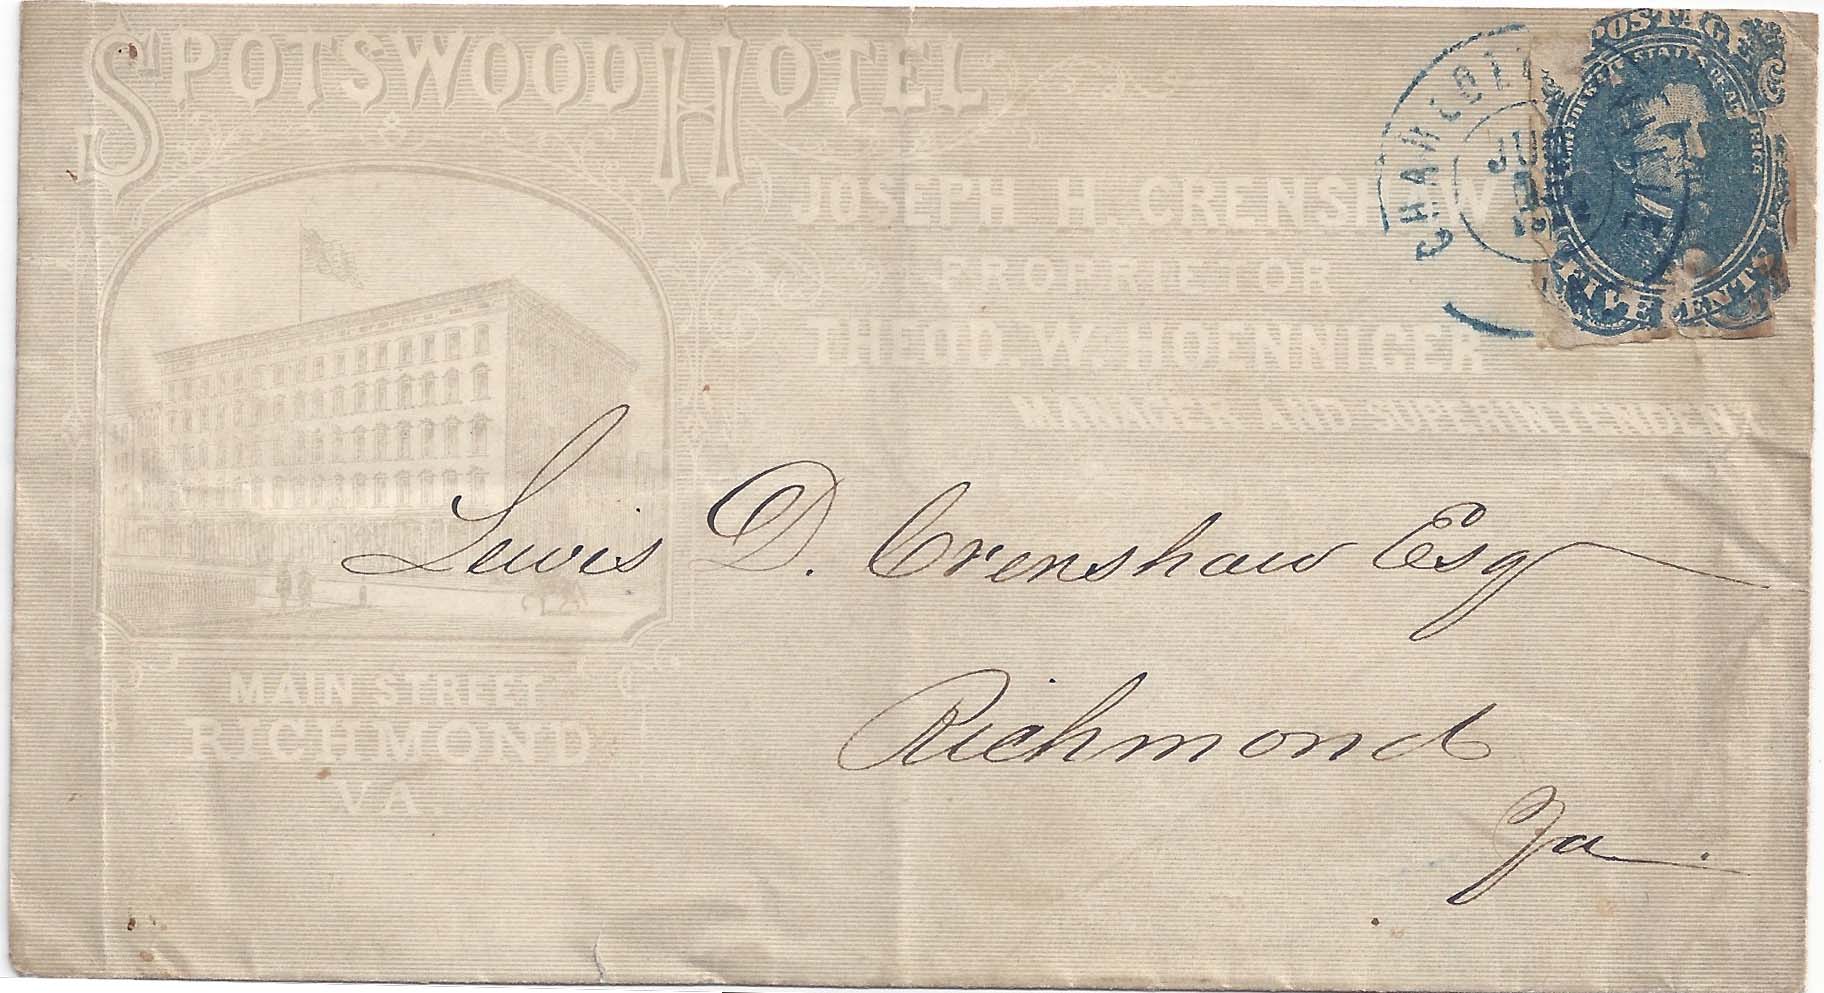 SPOTSWOOD HOTEL,
JOSEPH H. CRENSHAW
PROPRIETOR
THEOD. W. HOENNIGER
MANAGER AND SUPERINTENDENT
MAIN STREET
RICHMOND
VA.
POSTAGE
CONFEDERATE STATES OF AMERICA
FIVE CENTS
CHARLOTTESVILLE
Lewis D. Crenshaw Esq
Richmond
Va.